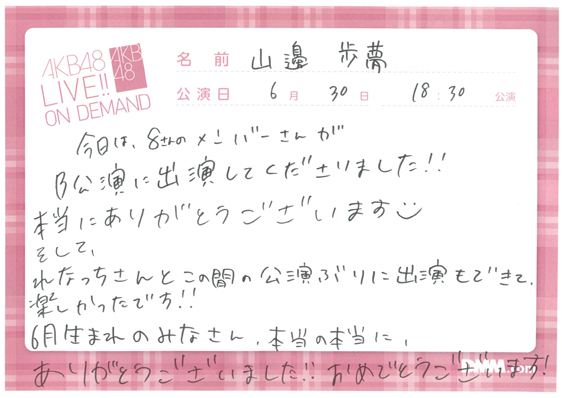 AKB48
LIVE!!
ON DEMAND
AKB
48
名前 山邊 歩夢
公演日 6月 30日 18:30 公演
今日は、8さんのメンバーさんが
B公演に出演してくださいました!!
本当にありがとうございます
そして、
れなっちさんとこの間の公演ぶりに出演もできて、
楽しかったです!!
6月生まれのみなさん、本当の本当に、
ありがとうございました!! おめでとうございます!
DMM.com